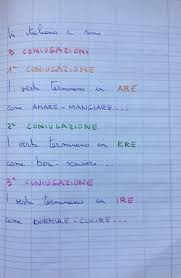 In italiano ci sono
3 CONIUGAZIONI
1ª CONIUGAZIONE
I verbi terminano in ARE
come AMARE - MANGIARE...
2ª CONIUGAZIONE
I verbi terminano in ERE
come bere - scrivere...
3ª CONIUGAZIONE
I verbi terminano in IRE
come DORMIRE - CUCIRE...